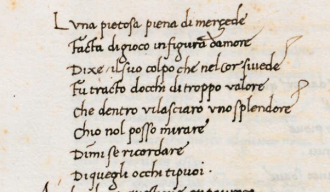 Lvna pietosa piena di mercede
Facta di gioco in figura damore
Dixe ilsuo colpo che nel cor siuede
Fu tracto docchi di troppo valore
Che dentro vilasciaro vno splendore
Chio nol posso mirare
Dimi se ricordare
Di quegli occhi tipuoi ·